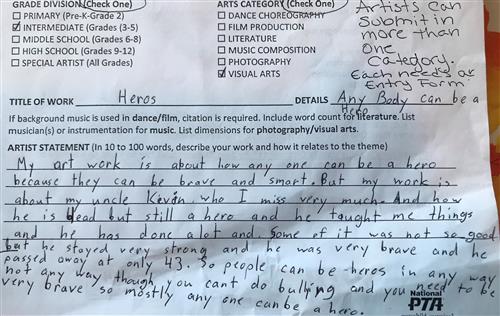 GRADE DIVISION (Check One)
PRIMARY (Pre-K-Grade 2)
INTERMEDIATE (Grades 3-5)
MIDDLE SCHOOL (Grades 6-8)
HIGH SCHOOL (Grades 9-12)
SPECIAL ARTIST (All Grades)
ARTS CATEGORY (Check One)
DANCE CHOREOGRAPHY
FILM PRODUCTION
LITERATURE
MUSIC COMPOSITION
PHOTOGRAPHY
VISUAL ARTS
Artists can
submit in
more than
one
category.
Each needs a
Entry Form
TITLE OF WORK Heros DETAILS Any Body can be a
Hero
If background music is used in dance/film, citation is required. Include word count for literature. List
musician(s) or instrumentation for music. List dimensions for photography/visual arts.
ARTIST STATEMENT (In 10 to 100 words, describe your work and how it relates to the theme)
My art work is about how any one can be a hero
because they can be brave and smart. But my work is
about my uncle Kevin, who I miss very much. And how
he is dead but still a hero and he taught me things
and he has done alot and. Some of it was not so good
but he stayed very strong and he was very brave and he
passed away at only 43. So people can be heros in any way
not any way though you cant do bullying and you need to be
very brave so mostly any one can be a hero.
National
PTA